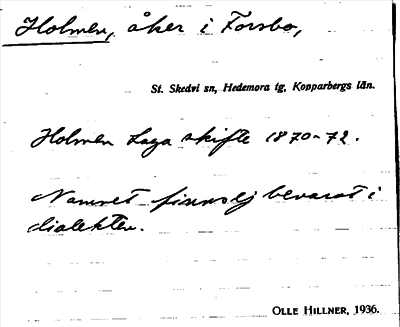 Holmen, åker i Forsbo,
St. Skedvi sn, Hedemora tg, Kopparbergs län.
Holmen Laga skifte 1870-72.
Namnet finns ej bevarat i
dialekten.
OLLE HILLNER, 1936.